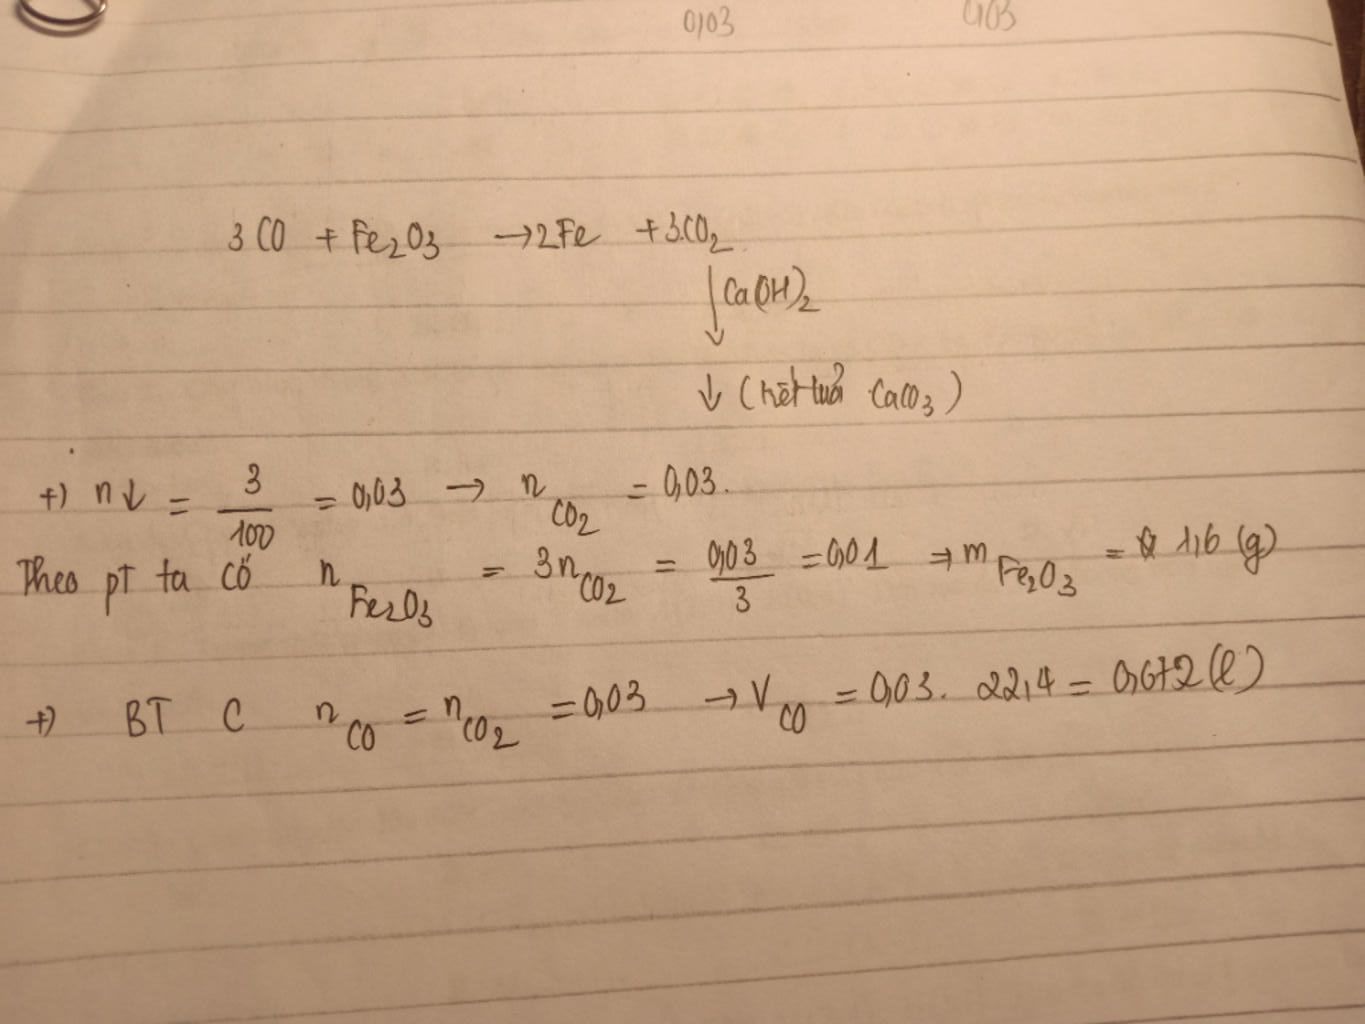 0,03 0,03
3CO + Fe₂O₃ → 2Fe + 3CO₂
↓ Ca(OH)₂
↓ (kết tủa CaCO₃)
+) n↓ = 3/100 = 0,03 → n CO₂ = 0,03.
Theo pT ta có n Fe₂O₃ = 3n CO₂ = 0,03/3 = 0,01 ⇒ m Fe₂O₃ = 1,6 (g)
+) BT C n CO = n CO₂ = 0,03 → V CO = 0,03. 22,4 = 0,672 (l)